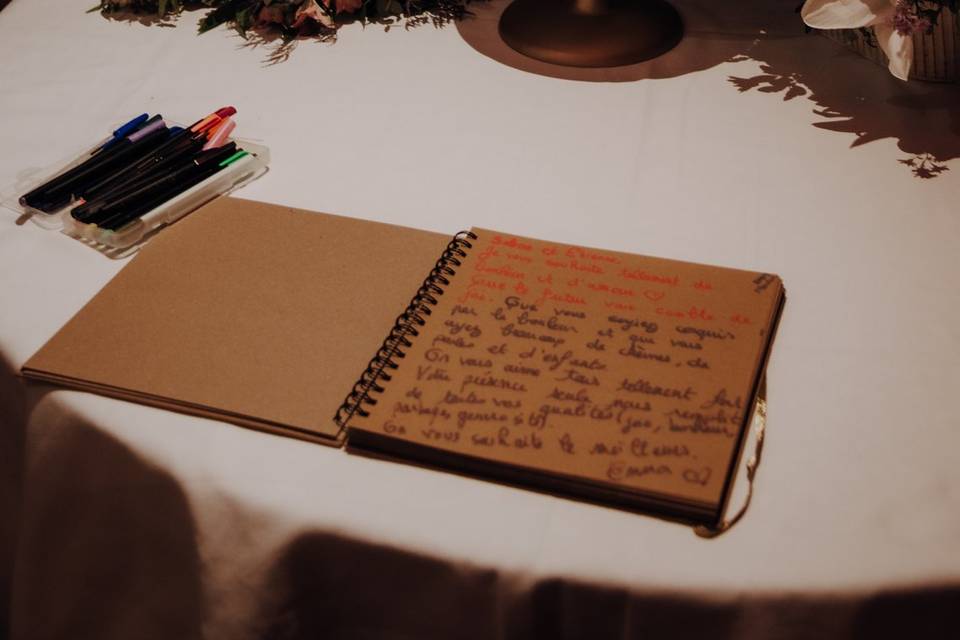 et Etienne,
Je vous souhaite tellement de
bonheur et d'amour ♡
Que le futur vous comble de
joie. Que vous soyiez conquis
par le bonheur et que vous
ayez beaucoup de chèvres, de
poules et d'enfants.
On vous aime tous tellement fort
Votre présence seule nous remplit
de toutes vos qualités (joie, bonheur
partages, générosité).
On vous souhaite le meilleur.
Emma ♡